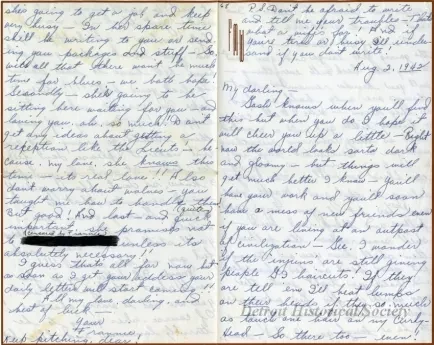 she's going to get a job and keep
very busy - In her spare time
she'll be writing to you or send-
ing you packages and stuff - So
with all that there won't be much
time for blues - we both hope!
Secondly - she's going to be
sitting here waiting for you - and
loving you, oh, so much! Don't
get any ideas about getting a
reception like the Lieuts - be
cause, my love, she knows this
time - its real love!! Also
don't worry about - you
taught me how to handle them
But good! And last - and quite
important - she promises not
to unless its
absolutely necessary!!
I guess thats all for now but
as soon as I get your address your
daily letters will start coming!!
All my love, darling, and
best of luck -
Your
Frannie
Keep pitching, dear!
P.S. Don't be afraid to write
and tell me your troubles - Thats
what a wife's for! And if
you're tired or busy I'll under-
stand if you don't write!
Aug 2, 1942
My darling -
Gosh knows when you'll find
this but when you do I hope it
will cheer you up a little - Right
now the world looks sorta dark
and gloomy - but things will
get much better I know - you'll
have your work and you'll soon
have a mess of new friends even
if you are living at an outpost
of civilization - Gee, I wonder
if the injins are still giving
people G.I. haircuts! If they
are tell em I'll beat lumps
on their heads if they so much
as touch one hair on my
head - So there too - even!
Detroit Historical Society